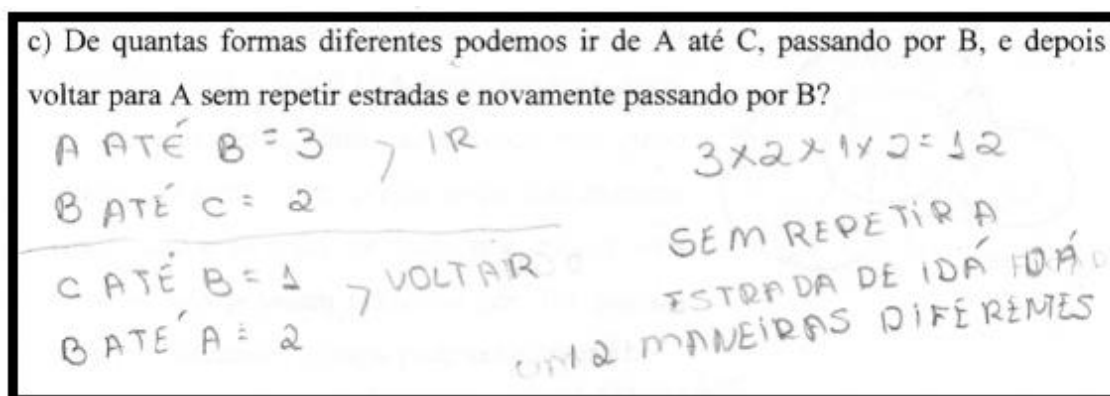 c) De quantas formas diferentes podemos ir de A até C, passando por B, e depois
voltar para A sem repetir estradas e novamente passando por B?
A ATÉ B = 3
B ATÉ C = 2
IR
C ATÉ B = 1
B ATÉ A = 2
VOLTAR
3x2x1x2=12
SEM REPETIR A
ESTRADA DE IDÁ DÁ
12 MANEIRAS DIFERENTES